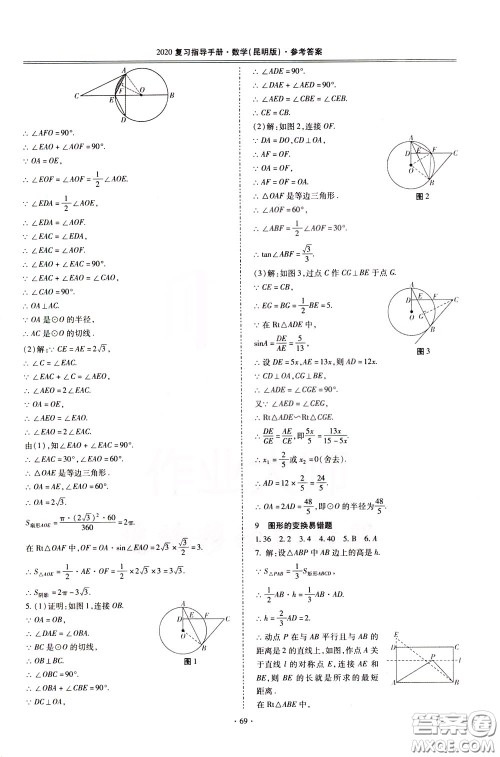 2020 复习指导手册·数学(昆明版)·参考答案
A
C
E
F
O
B
D
∴ ∠AFO=90°.
∴ ∠EAO+∠AOF=90°.
∵ OA=OE,
∴ ∠EOF=∠AOF=1/2∠AOE.
∵ ∠EDA=1/2∠AOE,
∴ ∠EDA=∠AOF.
∵ ∠EAC=∠EDA,
∴ ∠EAC=∠AOF.
∴ ∠EAO+∠EAC=90°.
∵ ∠EAC+∠EAO=∠CAO,
∴ ∠CAO=90°.
∴ OA⊥AC.
∵ OA是⊙O的半径,
∴ AC是⊙O的切线.
(2)解:∵ CE=AE=2√3,
∴ ∠C=∠EAC.
∵ ∠EAC+∠C=∠AEO,
∴ ∠AEO=2∠EAC.
∵ OA=OE,
∴ ∠AEO=∠EAO.
∴ ∠EAO=2∠EAC.
由(1),知∠EAO+∠EAC=90°,
∴ ∠EAC=30°,∠EAO=60°.
∴ △OAE是等边三角形.
∴ OA=2√3.
S扇形AOE=π·(2√3)²·60/360=2π.
在Rt△OAF中,OF=OA·sin∠EAO=2√3×√3/2=3.
∴ S△AOE=1/2AE·OF=1/2×2√3×3=3√3.
∴ S阴影=2π-3√3.
5.(1)证明:如图1,连接OB.
∵ OA=OB,
∴ ∠DAE=∠OBA.
∵ BC是⊙O的切线,
∴ OB⊥BC.
∴ ∠OBA+∠CBE=90°.
∵ DC⊥OA,
A
D
E
F
C
O
B
图1
∴ ∠ADE=90°.
∴ ∠DAE+∠AED=90°.
∴ ∠AED=∠CBE=∠CEB.
∴ CE=CB.
(2)解:如图2,连接OF.
∵ OD=DA,CD⊥OA,
∴ AF=OF.
∵ OA=OF,
∴ △OAF是等边三角形.
∴ ∠AOF=60°,
∴ ∠ABF=1/2∠AOF=30°.
∴ tan∠ABF=√3/3.
A
D
E
F
C
O
B
图2
(3)解:如图3,过点C作CG⊥BE于点G.
∵ CE=CB,
∴ EG=BG=1/2BE=5.
∵ 在Rt△ADE中,
sinA=DE/AE=5/13,
∴ 设DE=5x,AE=13x,则AD=12x.
∵ CD⊥OA,CG⊥BE,
∴ ∠ADE=∠CGE=90°.
又∵ ∠AED=∠CEG,
∴ Rt△ADE∽Rt△CGE.
∴ DE/GE=AE/CE,即5x/5=13x/(15-5x).
∴ x₁=2/5或x₂=0(舍去).
∴ AD=12×2/5=24/5.
∴ OA=2AD=48/5,即⊙O的半径为48/5.
A
D
E
C
G
O
B
图3
9 图形的变换易错题
1.36 2.2 3.4 4.40 5.B 6.A
7.解:设△ABP中AB边上的高是h.
∵ S△PAB=1/3S矩形ABCD,
∴ 1/2AB·h=1/3AB·AD.
∴ h=2/3AD=2.
∴ 动点P在与AB平行且与AB的
距离是2的直线上,如图,作A关于
直线l的对称点E,连接AE,连接
BE,则BE的长就是所求的最短
距离.
在Rt△ABE中,
E
D
C
l
P
A
B
·69·